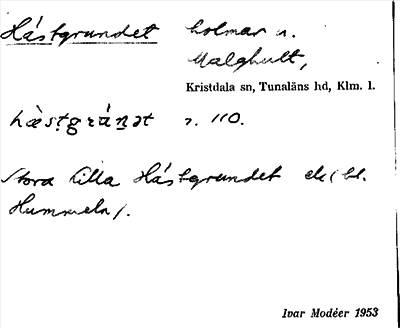 Hästgrundet holmar n.
Malghult,
Kristdala sn, Tunaläns hd, Klm. l.
hæ̀stgránət n. 110.
Stora Lilla Hästgrundet ek( bl.
Hummeln/.
Ivar Modéer 1953